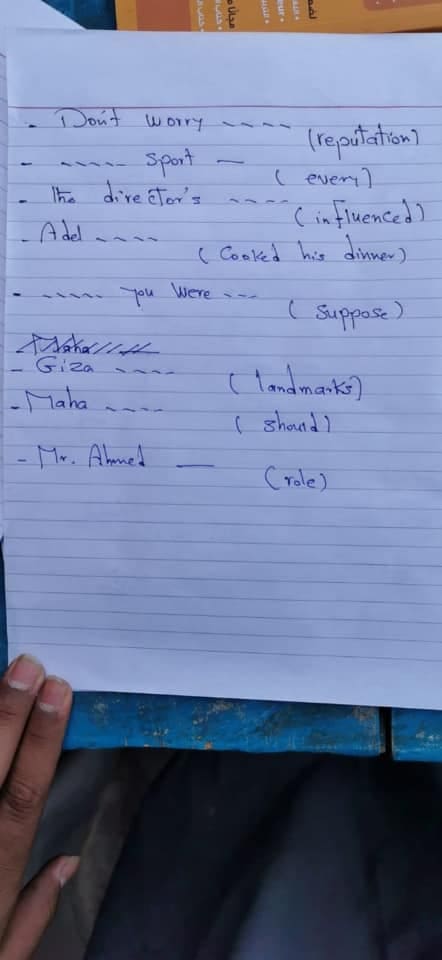 - Don't worry ----
(reputation)
- ----- sport —
( every)
- The director's ----
(influenced)
- Adel ----
( Cooked his dinner)
- ----- you were ---
( suppose)
- Giza ----
( landmarks)
- Maha ----
( should)
- Mr. Ahmed —
(role)